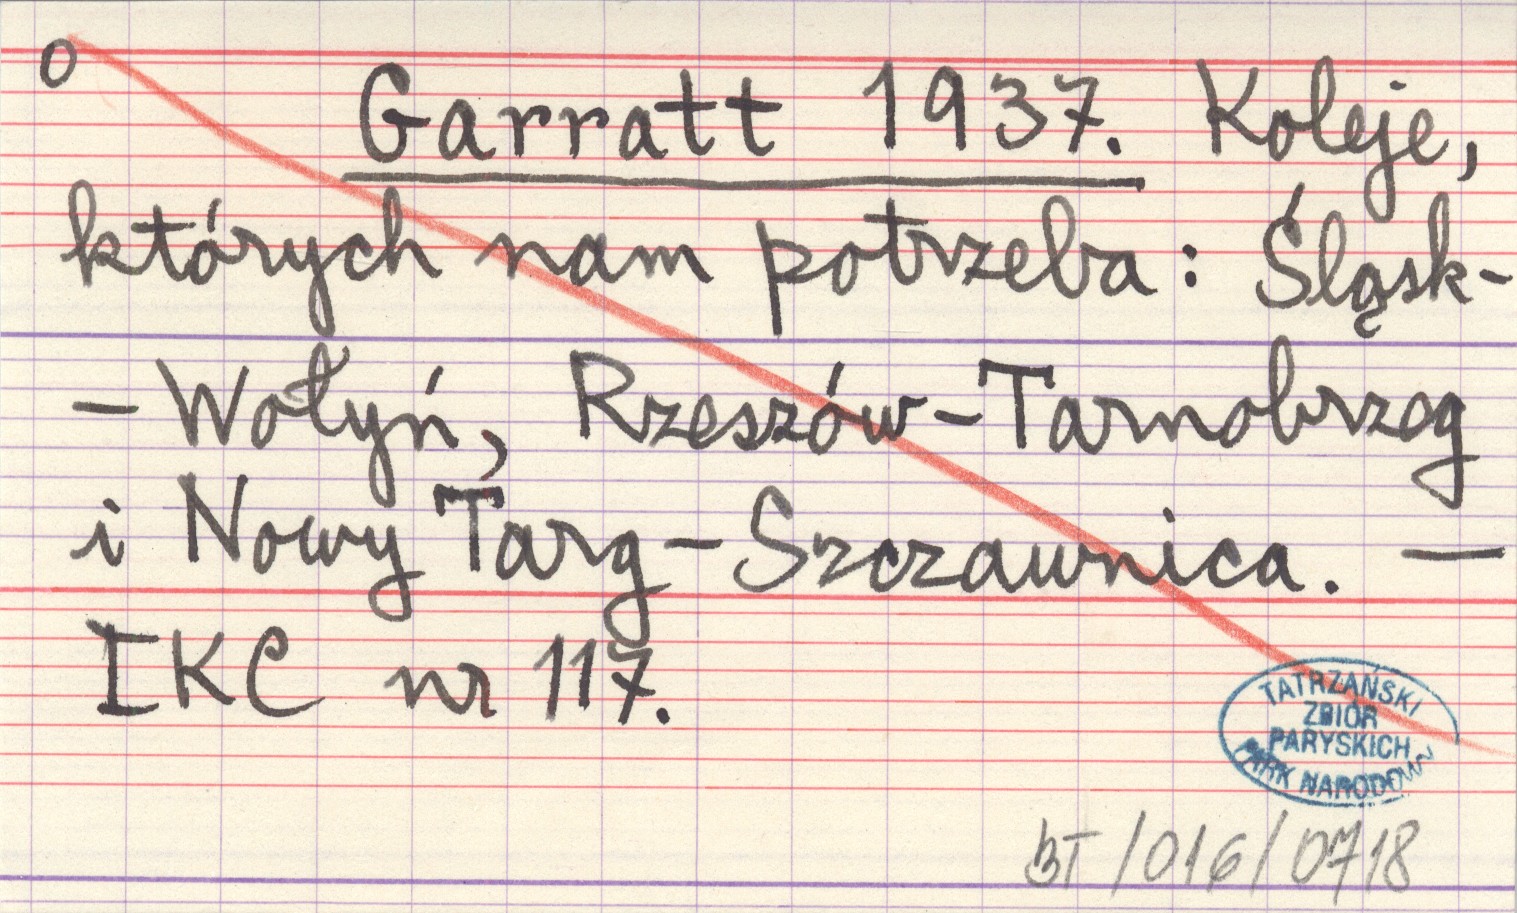 o
Garratt 1937. Koleje,
których nam potrzeba: Śląsk-
- Wołyń, Rzeszów-Tarnobrzeg
i Nowy Targ-Szczawnica. —
IKC nr 117.
TATRZAŃSKI
ZBIÓR
PARYSKICH
PARK NARODOWY
BT/016/0718